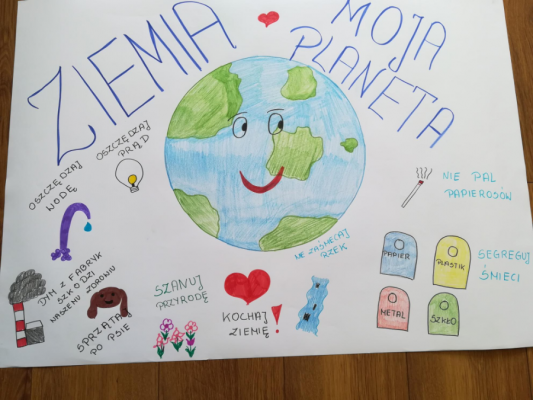 ZIEMIA
MOJA
PLANETA
OSZCZĘDZAJ
WODĘ
OSZCZĘDZAJ
PRĄD
NIE PAL
PAPIEROSÓW
NIE ZAŚMIECAJ
RZEK
PAPIER
PLASTIK
METAL
SZKŁO
SEGREGUJ
ŚMIECI
DYM Z FABRYK
SZKODZI
NASZEMU ZDROWIU
SPRZĄTAJ
PO PSIE
SZANUJ
PRZYRODĘ
KOCHAJ
ZIEMIĘ!